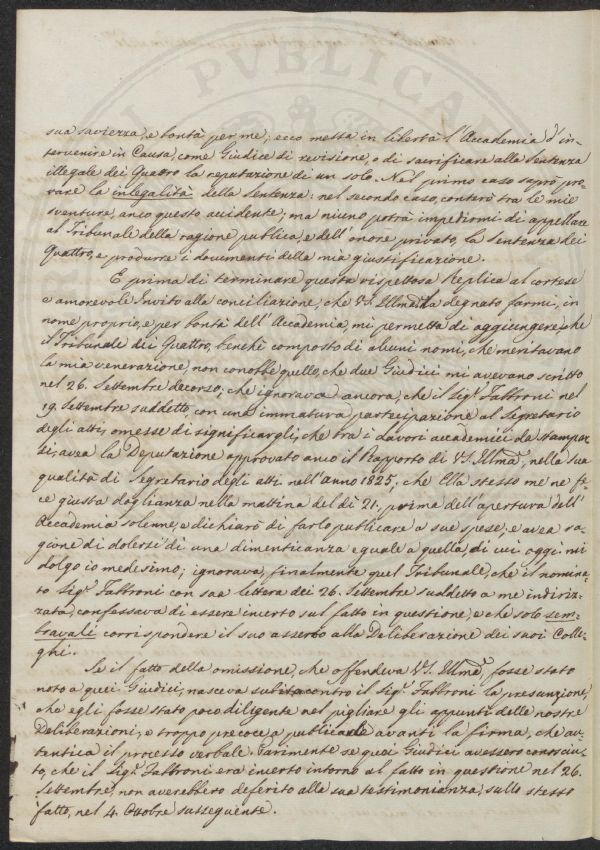 sua saviezza, e bontà per me; ecco messa in libertà l'Accademia d'in-
tervenire in Causa, come Giudice di revisione, o di sacrificare alla Sentenza
illegale dei Quattro la reputazione di un solo. Nel primo caso saprò pro-
vare la inlegalità della Sentenza: nel secondo caso, conterò tra le mie
sventure, anco questo accidente; ma niuno potrà impedirmi di appellare
al Tribunale della ragione publica, e dell'onore privato, la Sentenza dei
Quattro, e produrre i documenti della mia giustificazione.
E prima di terminare questa rispettosa Replica al cortese
e amorevole Invito alla conciliazione, che VS. Illma ha degnato farmi, in
nome proprio, e per bontà dell'Accademia, mi permetta di aggiungere, che
il Tribunale dei Quattro, benchè composto di alcuni nomi, che meritavano
la mia venerazione, non conobbe quello, che due Giudici mi avevano scritto
nel 26. Settembre decorso; che ignorava ancora, che il Sigr. Fabbroni nel
19. Settembre suddetto, con una immatura partecipazione al Segretario
degli atti, omesse di significargli, che tra i lavori accademici da stampar-
si, avea la Deputazione approvato anco il Rapporto di VS. Illma, nella sua
qualità di Segretario degli atti nell'anno 1825; che Ella stessa me ne fe-
ce giusta doglianza nella mattina del dì 21. prima dell'apertura dell'
Accademia solenne, e dichiarò di farlo publicare a sue spese; e avea ra-
gione di dolersi di una dimenticanza eguale a quella, di cui oggi mi
dolgo io medesimo; ignorava, finalmente quel Tribunale, che il nomina-
to Sigr. Fabbroni con sua lettera dei 26. Settembre suddetto a me indiriz-
zata, confessava di essere incerto sul fatto in questione, e che solo sem-
bravali corrispondere il suo asserto alla Deliberazione dei suoi Colle-
ghi.
Se il fatto della omissione, che offendeva VS. Illma, fosse stato
noto a quei Giudici, nasceva subito contro il Sigr. Fabbroni la presunzione,
che egli fosse stato poco diligente nel pigliare gli appunti delle nostre
Deliberazioni, e troppo precoce a publicarle avanti la firma, che au-
tentica il processo verbale. Parimente se quei Giudici avessero conosciu-
to, che il Sigr. Fabbroni era incerto intorno al fatto in questione nel 26.
Settembre, non averebbero deferito alla sua testimonianza, sullo stesso
fatto, nel 4. Ottobre susseguente.
PUBLICAE